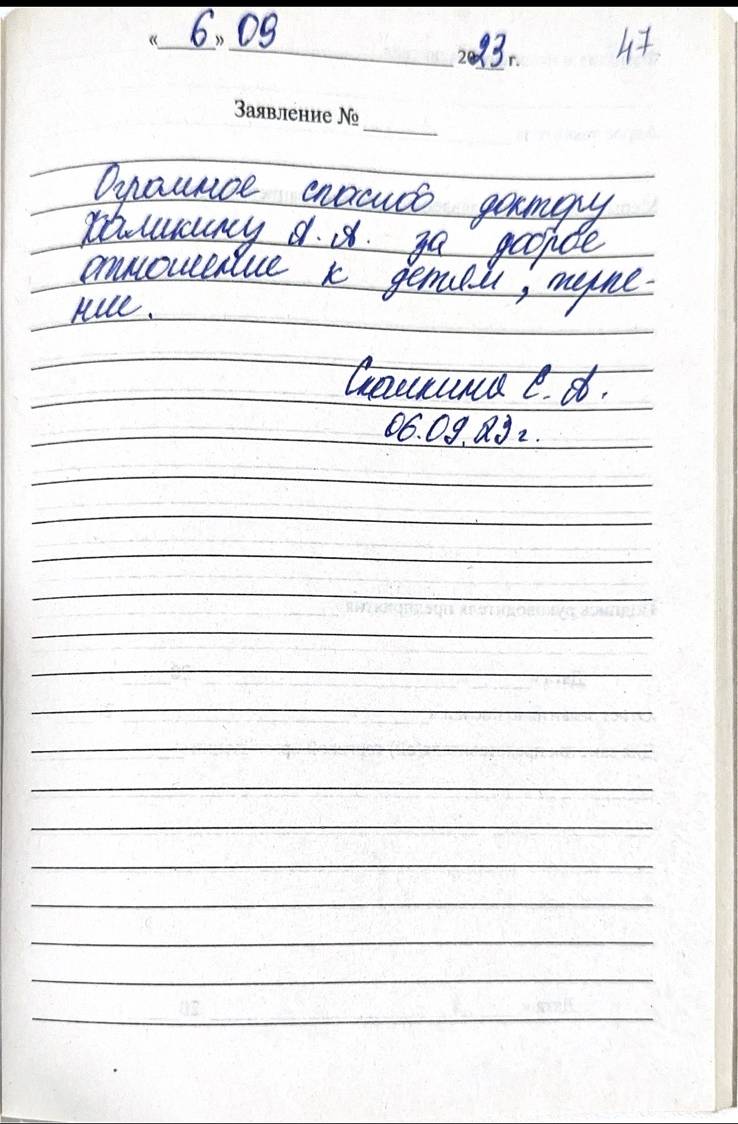 « 6 » 09 2023 г. 47
Заявление №
Огромное спасибо доктору
Халикину А. А. за доброе
отношение к детям, терпе-
ние.
Скалкина С. А.
06.09.23 г.